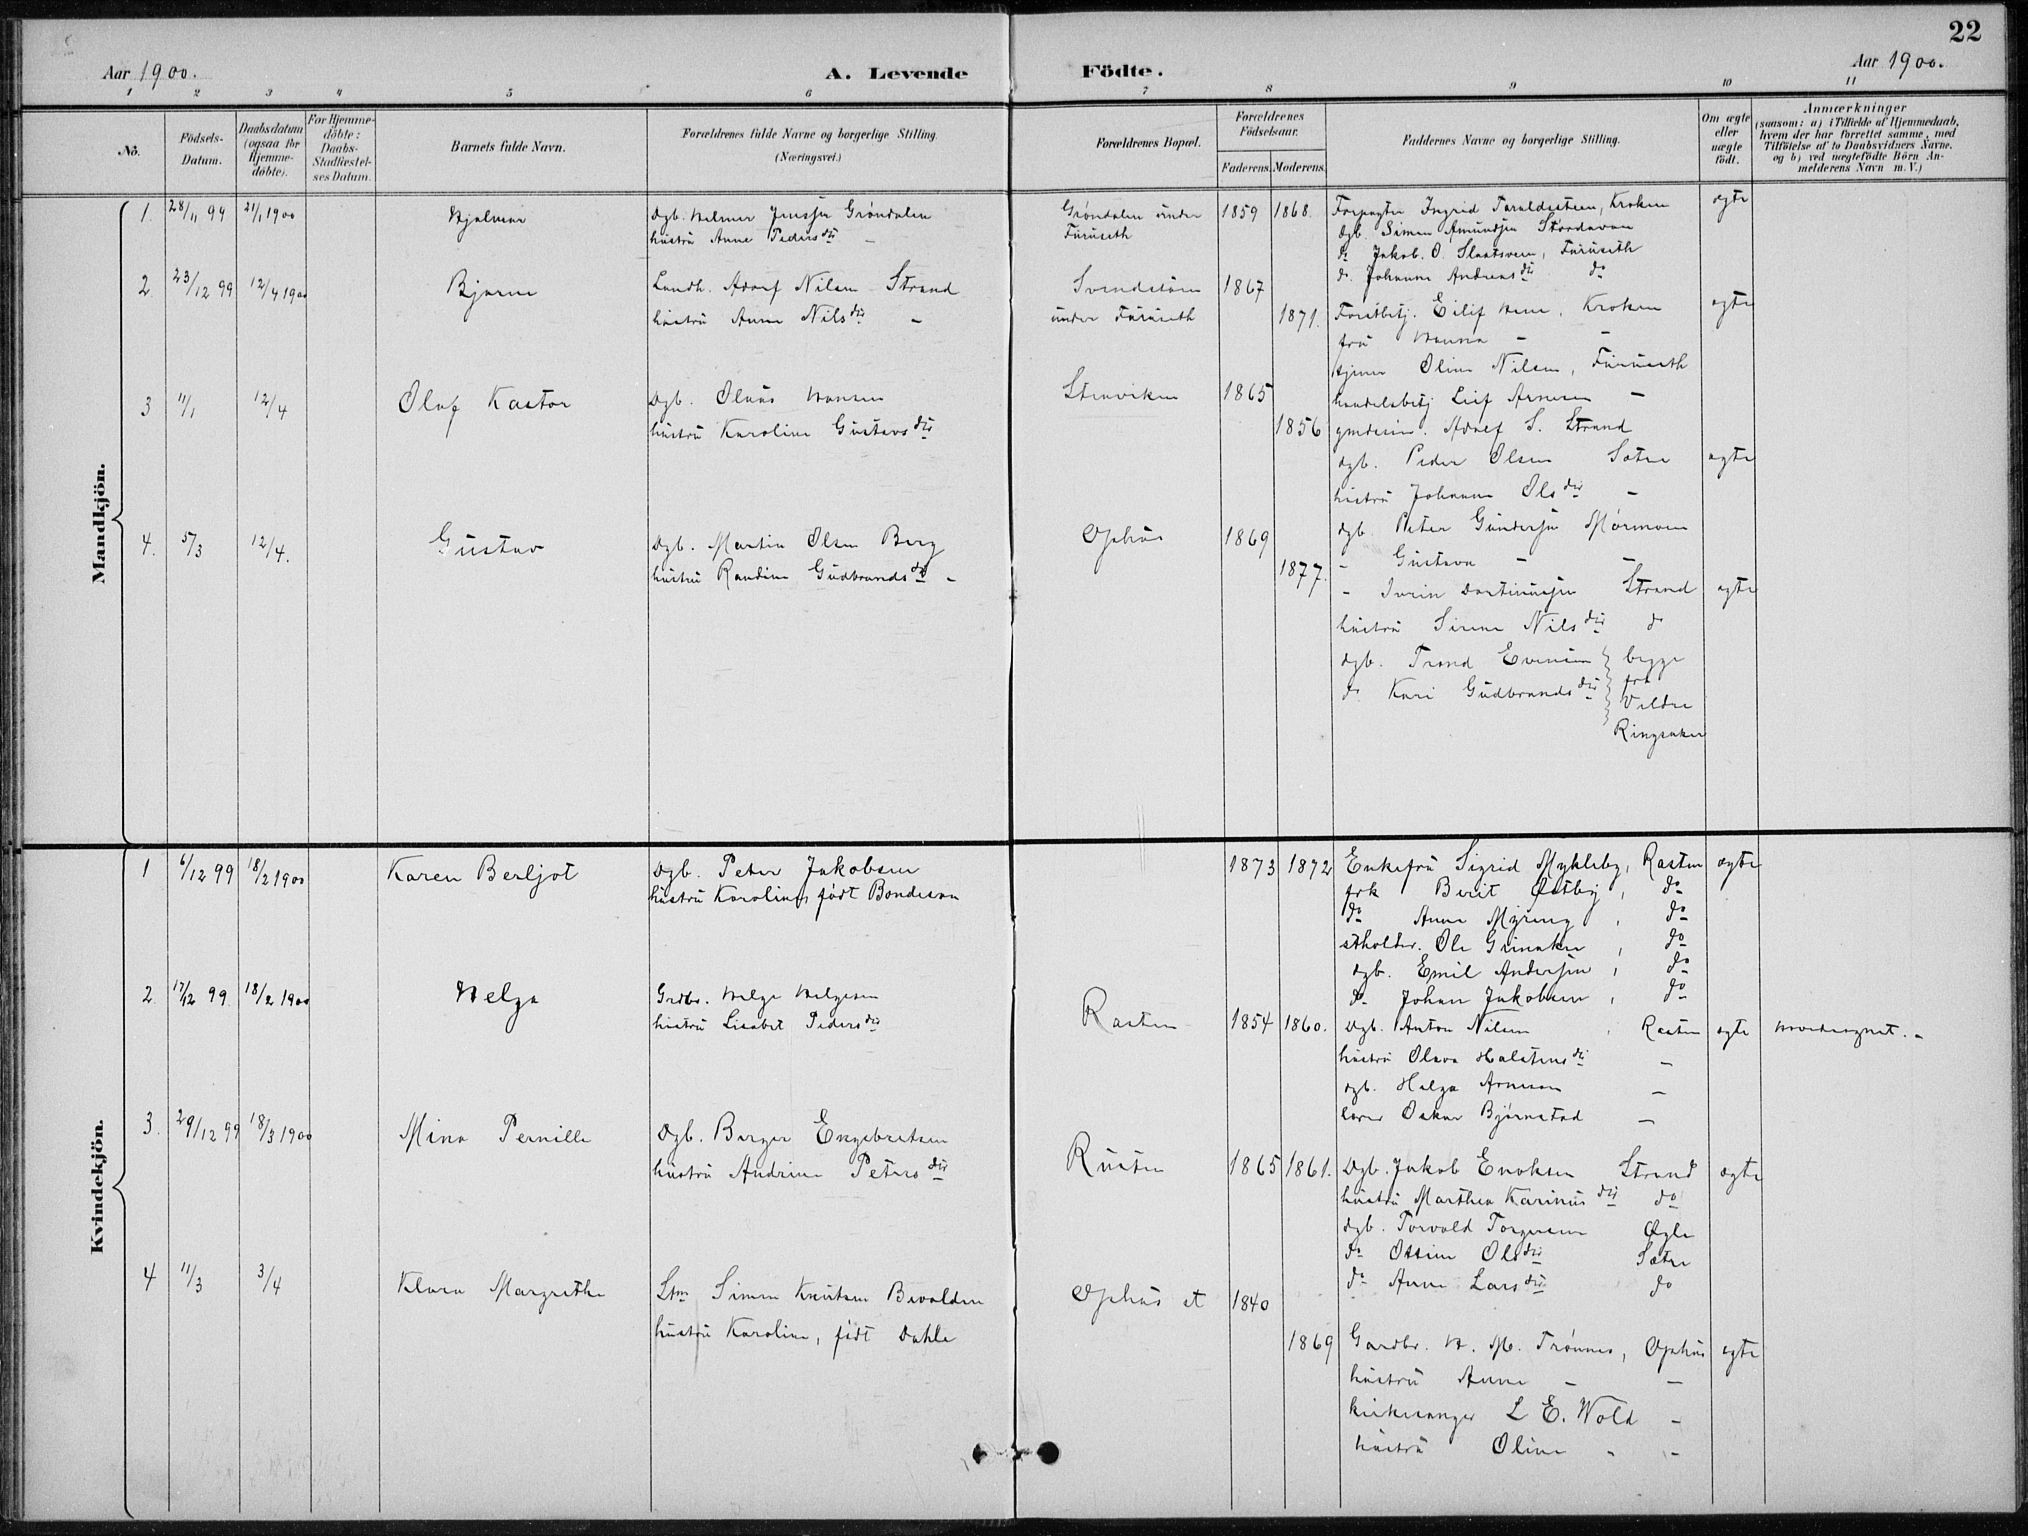 22
Aar 1900.
A. Levende Födte.
Aar 1900.
1 2 3 4 5 6 7 8 9 10 11
No.
Födsels-Datum.
Daabsdatum (ogsaa for Hjemme-döbte).
For Hjemme-döbte: Daabs-Stadfæstel-ses Datum.
Barnets fulde Navn.
Forældrenes fulde Navne og borgerlige Stilling. (Næringsvei.)
Forældrenes Bopæl.
Forældrenes Födselsaar.
Faderens. Moderens.
Faddernes Navne og borgerlige Stilling.
Om ægte eller uægte födt.
Anmærkninger
(saasom: a) i Tilfælde af Hjemmedaab,
hvem der har forrettet samme, med
Tilföielse af to Daabsvidners Navne.
og b) ved uægtefödte Börn An-
melderens Navn m. V.)
Mandkjön.
1. 28/11 99 21/1 1900 Hjalmar
Dgb. Helmer Jenssen Grøndalen
hustru Anne Pedersdtr -
Grøndalen under
Furuseth
1859 1868.
Ingrid Taraldsteen, Kroken
dgb. Simen Amundsen
do Jakob O. Slaatsveen, Furuseth
do. Johanne Andreasdtr do
ægte
2. 23/12 99 12/4 1900 Bjarne
Landh. Adolf Nilsen Strand
hustru Anne Nilsdtr -
under Furuseth
1867
1871.
Forstbetj. Eilif Kroken
fru Hanna -
Oline Nilsen, Furuseth
handelsbetj Leif Arnesen -
Adolf S. Strand
ægte
3 11/1 12/4 Olaf Kastor
Dgb. Olaus Hansen
hustru Karoline Gustavsdtr
Stenviken
1865
1856
dgb. Peder Olsen Sætre
hustru Johanne Olsdtr -
ægte
4. 5/3 12/4. Gustav
Dgb. Martin Olsen Berg
hustru Randine Gudbrandsdtr -
Ophus
1869
1877.
dgb. Peter Gundersen Mørmoen
- Gustava - -
- Strand
hustru Sirene Nilsdtr do
dgb. Trond Evensen
do Kari Gudbrandsdtr
begge
fra
Veldre
Ringsaker
ægte
Kvindekjön.
1 6/12 99 18/2 1900 Karen Berljot
Dgb. Peter Jakobsen
hustru Karoline, født Bondeson
1873 1872
Enkefru Sigrid Mykleby, Rasten
frk Berit Østby, do
do Anne Myreng, do
stholder. Ole Grinaker, do
dgb. Emil Andersen, do
do Johan Jakobsen, do
ægte
2. 17/12 99 18/2 1900 Helga
Grdbr. Helge Helgesen
hustru Lisabet Pedersdtr
Rasten
1854 1860.
Dgb. Anton Nilsen, Rasten
hustru Olava Halstensdtr -
dgb. Helge Arnesen -
lærer Oskar Bjørnstad -
ægte
3. 29/12 99 18/3 1900 Mina Pernille
Dgb. Berger Engebretsen
hustru Andrine Petersdtr
Rusten
1865 1861.
Dgb. Jakob Enoksen Strand
hustru Marthea Karinusdtr do
dgb. Torvald Torgersen Øgle
do Ossine Olsdtr Sætre
do Anne Larsdtr do
ægte
4 11/3 3/4 Klara Margrethe
Stm Simen Knutsen Bevolden
hustru Karoline, født Dahle
Ophus st
1840
1869
Gaardbr. H. M. Trønnes, Ophus
hustru Anne - -
kirkesanger L E. Wold -
hustru Oline - -
ægte